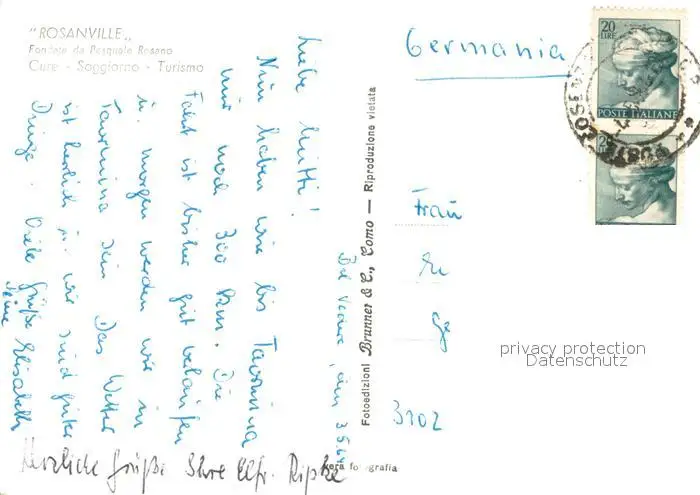 "ROSANVILLE"
Fondata da Pasquale Rosano
Cure - Soggiorno - Turismo
Liebe Mutti!
Nun haben wir bis Taormina
nur noch 300 km. Die
Fahrt ist bisher gut verlaufen
u. morgen werden wir in
Taormina sein. Das Wetter
ist herrlich u. wir sind guter
Dinge. Viele Grüße
Deine Elisabeth
Herzliche Grüße Ihre Elfr. Ripke
den 3.5.64
Fotoedizioni Brunner & C., Como — Riproduzione vietata
vera fotografia
Germania
20
LIRE
POSTE ITALIANE
Frau
3102
privacy protection
Datenschutz